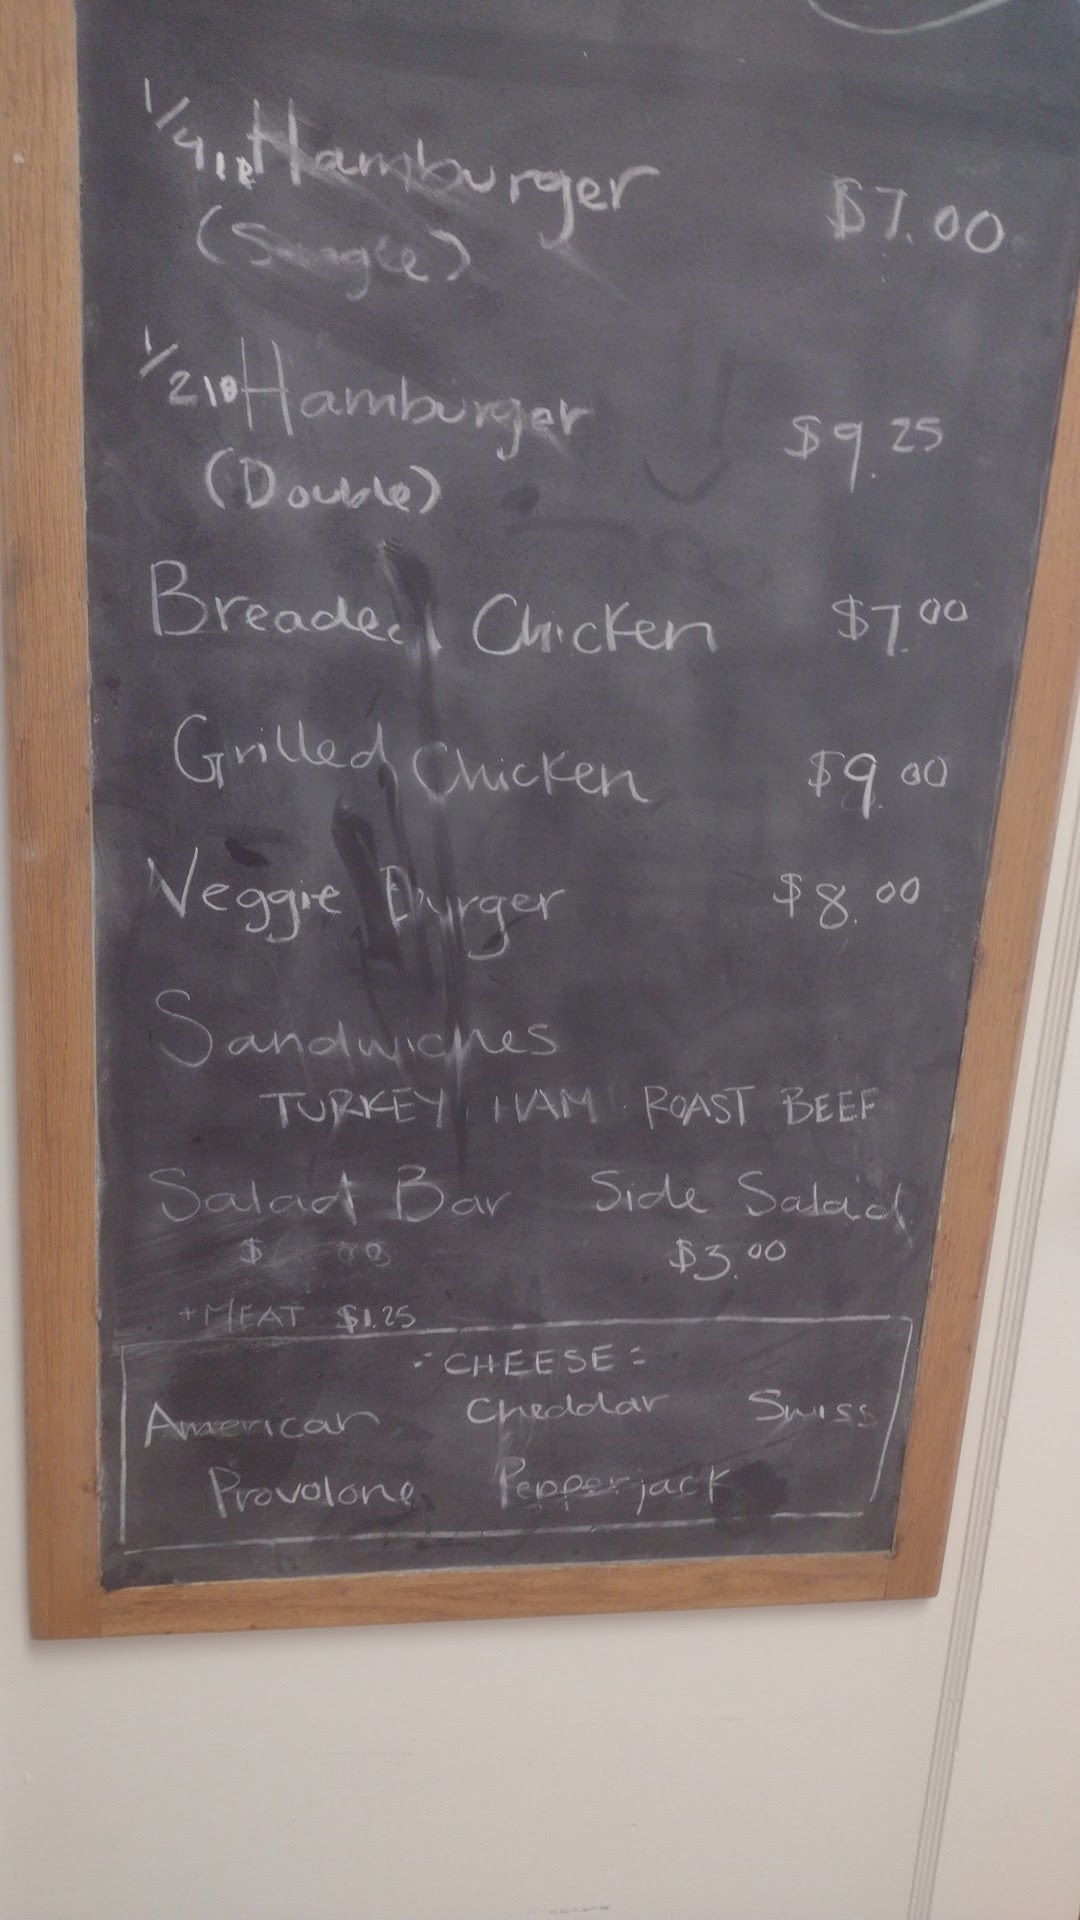 1/4 lb Hamburger $7.00
(Single)
1/2 lb Hamburger $9.25
(Double)
Breaded Chicken $7.00
Grilled Chicken $9.00
Veggie Burger $8.00
Sandwiches
TURKEY HAM ROAST BEEF
Salad Bar Side Salad
$ 00 $3.00
+ MEAT $1.25
CHEESE
American Cheddar Swiss
Provolone Pepperjack